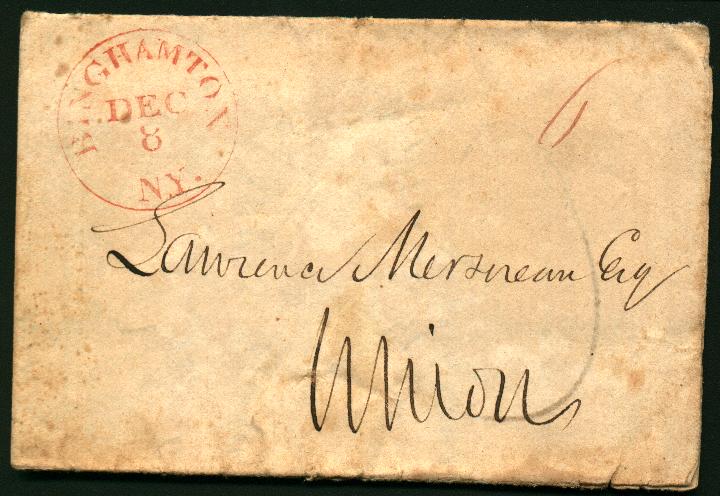 BINGHAMTON
DEC
8
N.Y.
6
Lawrence Mersereau Esq
Union